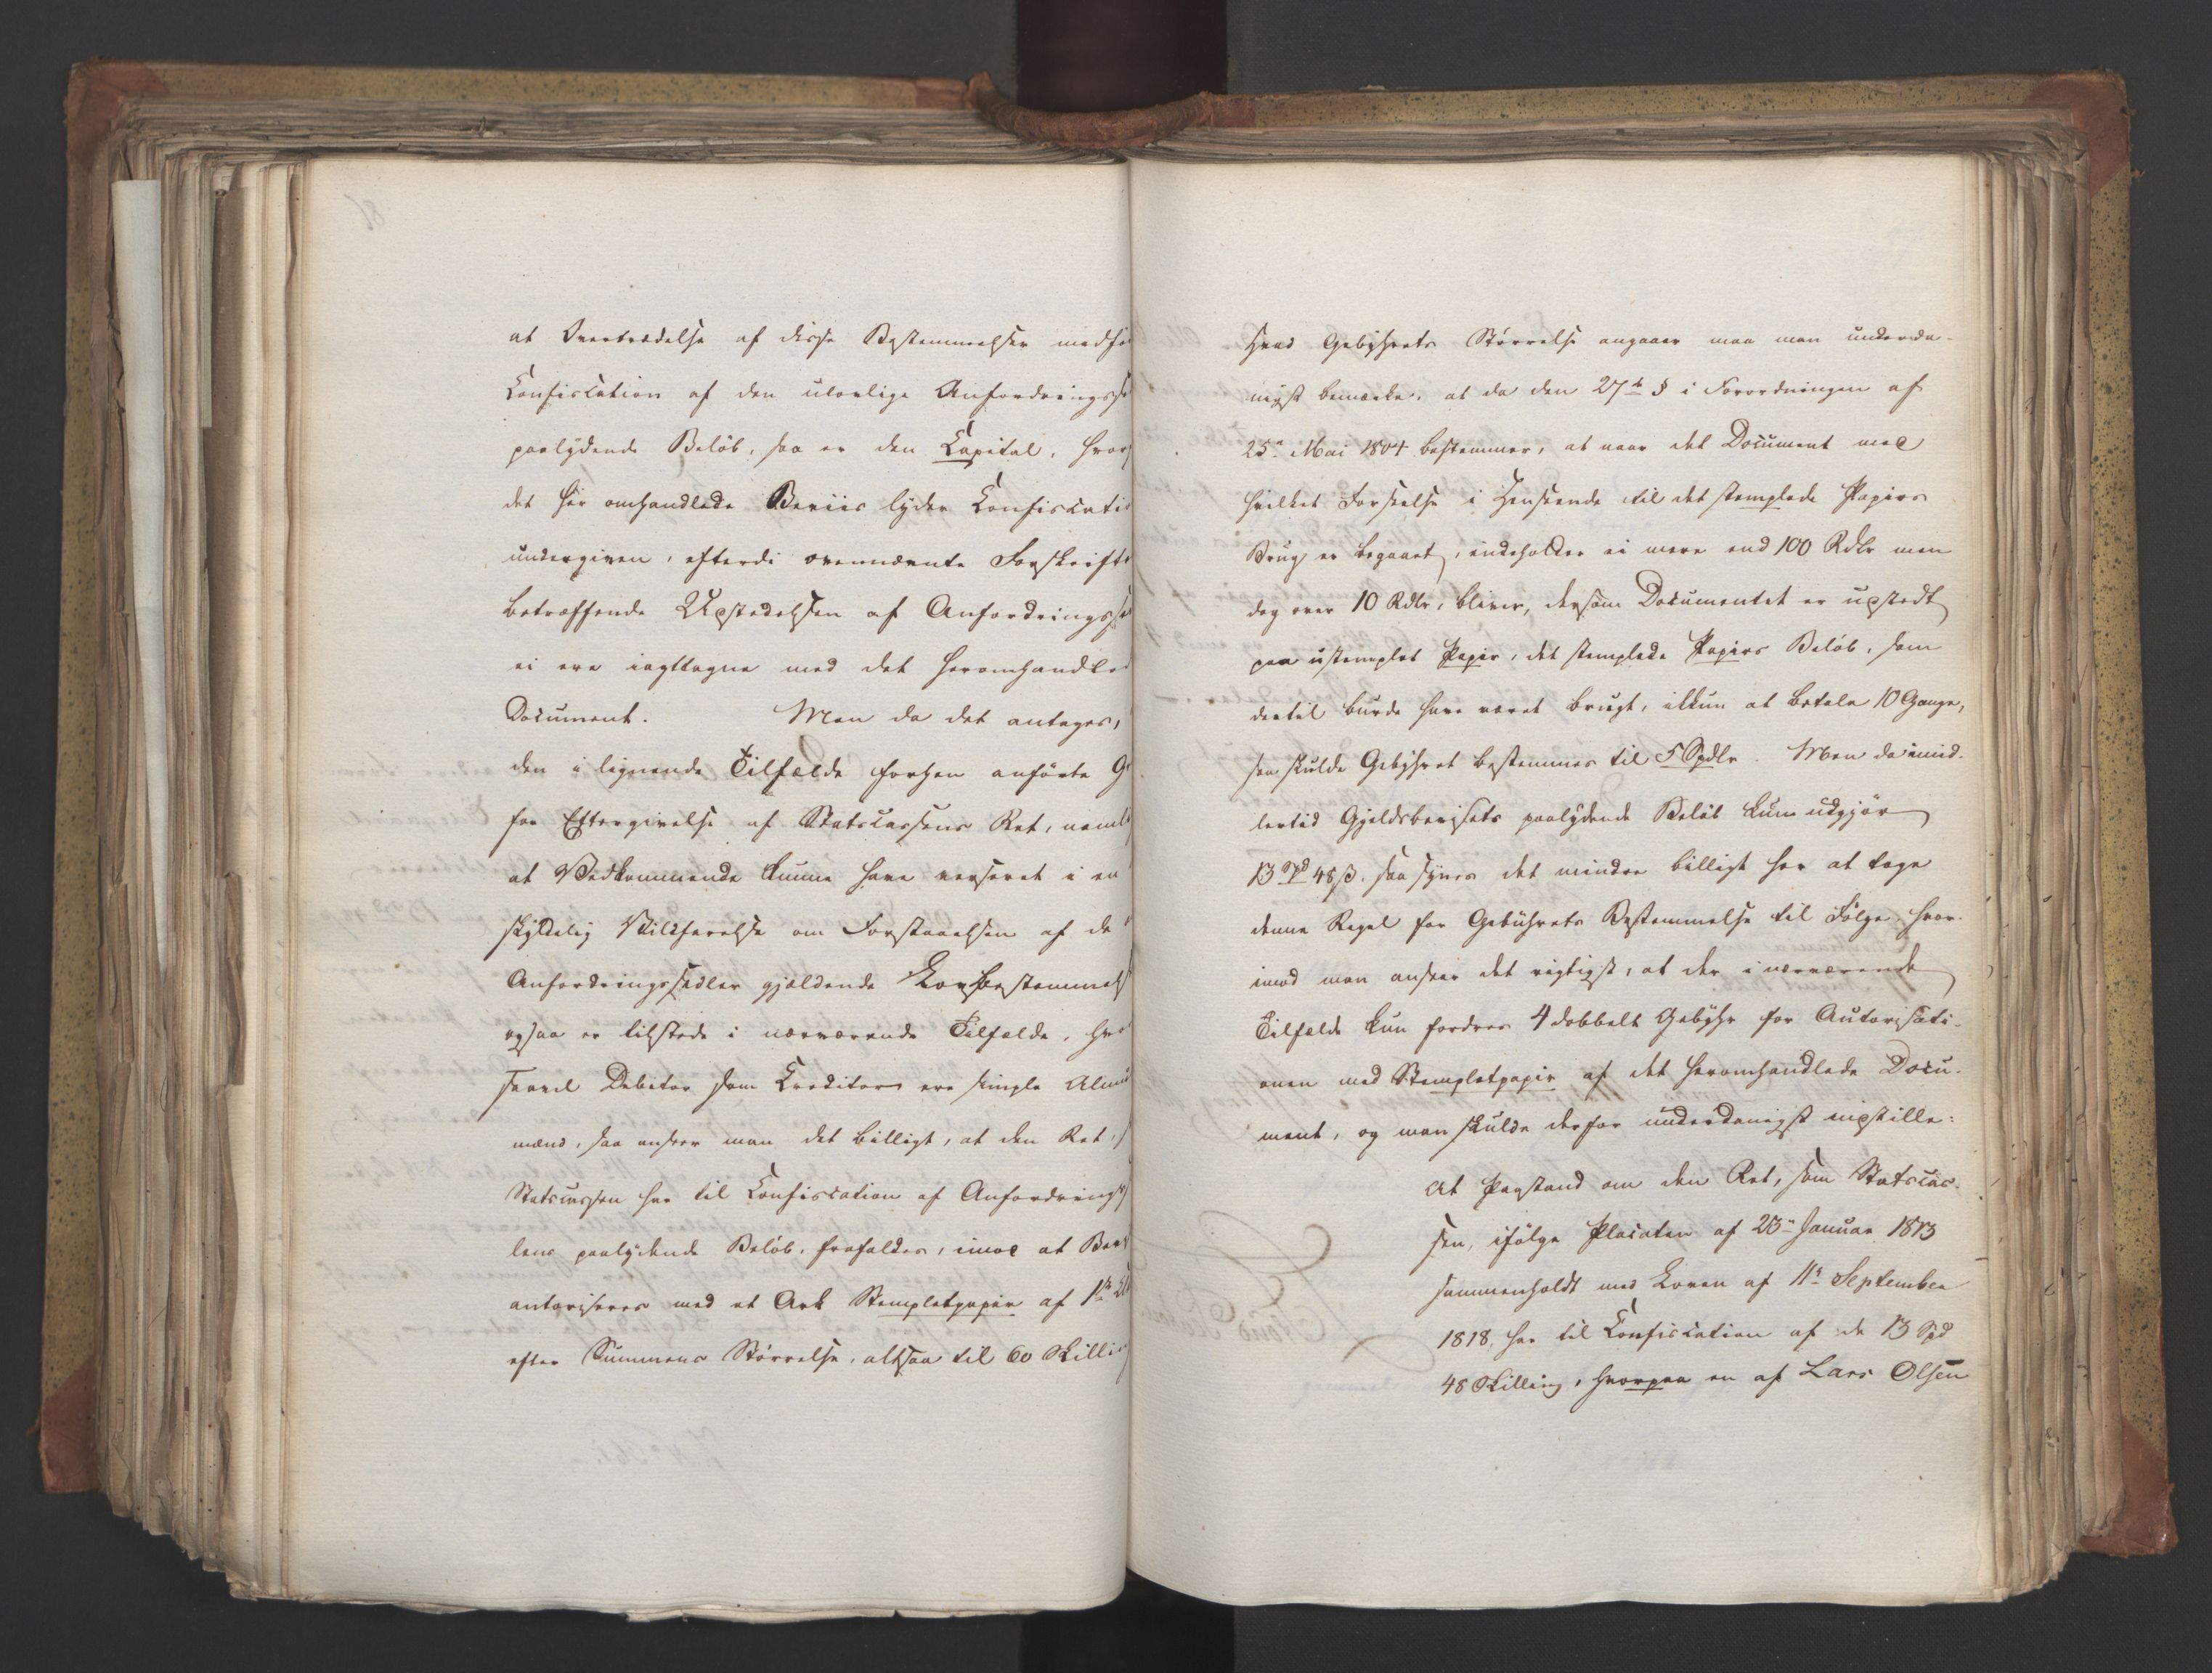 at Overtrædelse af disse Bestemmelser medfø
Confiscation af den ulovlige Anfordringsse
paalydende Beløb, saa er den Capital, hvor
det her omhandlede Beviis lyder Confiscati
undergiven, efterdi ovennævnte Forskrift
betræffende Udstedelsen af Anfordringsse
ei ere iagttagne med det heromhandle
Document. Men da det antages,
den i lignende Tilfælde forhen anførte G
for Eftergivelse af Statscassens Ret, neml
at Vedkommende kunne have verseret i en
skyldelig Vildfarelse om Forstaaelsen af de
Anfordringssedler gjældende Lovbestemmels
ogsaa er tilstede i nærværende Tilfælde, hvo
saavel Debitor som Creditor ere simple Almu
mænd, saa anseer man det billigt, at den Ret,
Statscassen har til Confiscation af Anfordrings
lens paalydende Beløb, frafaldes, imod at Bev
autoriseres med et Ark Stempletpapir af 1ste
efter Summens Størrelse, altsaa til 60 Skilli
Hvad Gebyhrets Størrelse angaaer maa man underda-
nigst bemærke, at da den 27de § i Forordningen af
25n Mai 1804 bestemmer, at naar det Document med
hvilket Forseelse i Henseende til det stemplede Papiirs
Brug er begaaet, indeholder ei mere end 100 Rdlr men
dog over 10 Rdlr, bliver, dersom Documentet er udstedt
paa ustemplet Papir, det stemplede Papirs Beløb, som
dertil burde have været brugt, ikkun at betale 10 Gange,
saa skulde Gebyhret bestemmes til 5 Spdlr. Men da imid-
lertid Gjeldsbevisets paalydende Beløb kun udgjør
13 Spd 48 ß. saa synes det mindre billigt her at tage
denne Regel for Gebührets Bestemmelse til Følge, hvor-
imod man anseer det rigtigst, at der i nærværende
Tilfælde kun fordres 4 dobbelt Gebyhr for Autorisati-
onen med Stempletpapir af det heromhandlede Docu-
ment, og man skulde derfor underdanigst indstille:
At Paastand om den Ret, som Statscas-
sen, ifølge Placaten af 23n Januar 1813
sammenholdt med Loven af 11te September
1818, har til Confiscation af de 13 Spd
48 Skilling, hvorpaa en af Lars Olsen